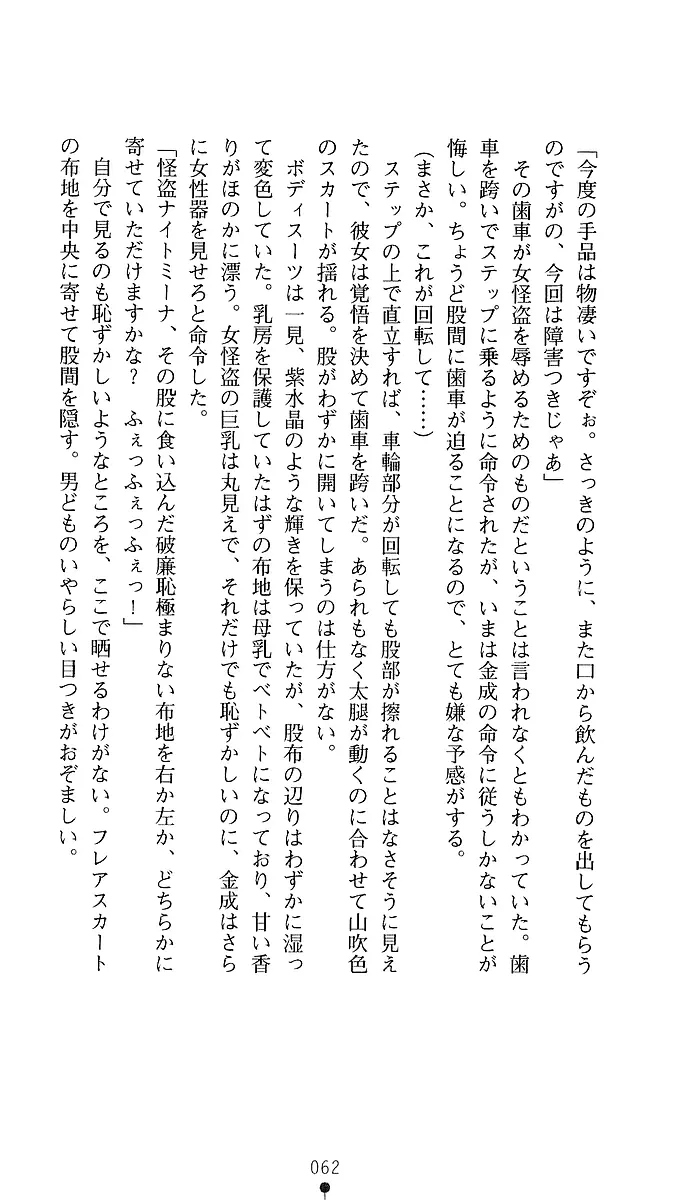 「今度の手品は物凄いですぞぉ。さっきのように、また口から飲んだものを出してもらう
のですがの、今回は障害つきじゃあ」
　その歯車が女怪盗を辱めるためのものだということは言われなくともわかっていた。歯
車を跨いでステップに乗るように命令されたが、いまは金成の命令に従うしかないことが
悔しい。ちょうど股間に歯車が迫ることになるので、とても嫌な予感がする。
（まさか、これが回転して……）
　ステップの上で直立すれば、車輪部分が回転しても股部が擦れることはなさそうに見え
たので、彼女は覚悟を決めて歯車を跨いだ。あられもなく太腿が動くのに合わせて山吹色
のスカートが揺れる。股がわずかに開いてしまうのは仕方がない。
　ボディスーツは一見、紫水晶のような輝きを保っていたが、股布の辺りはわずかに湿っ
て変色していた。乳房を保護していたはずの布地は母乳でベトベトになっており、甘い香
りがほのかに漂う。女怪盗の巨乳は丸見えで、それだけでも恥ずかしいのに、金成はさら
に女性器を見せろと命令した。
「怪盗ナイトミーナ、その股に食い込んだ破廉恥極まりない布地を右か左か、どちらかに
寄せていただけますかな？　ふぇっふぇっふぇっ！」
　自分で見るのも恥ずかしいようなところを、ここで晒せるわけがない。フレアスカート
の布地を中央に寄せて股間を隠す。男どものいやらしい目つきがおぞましい。
062